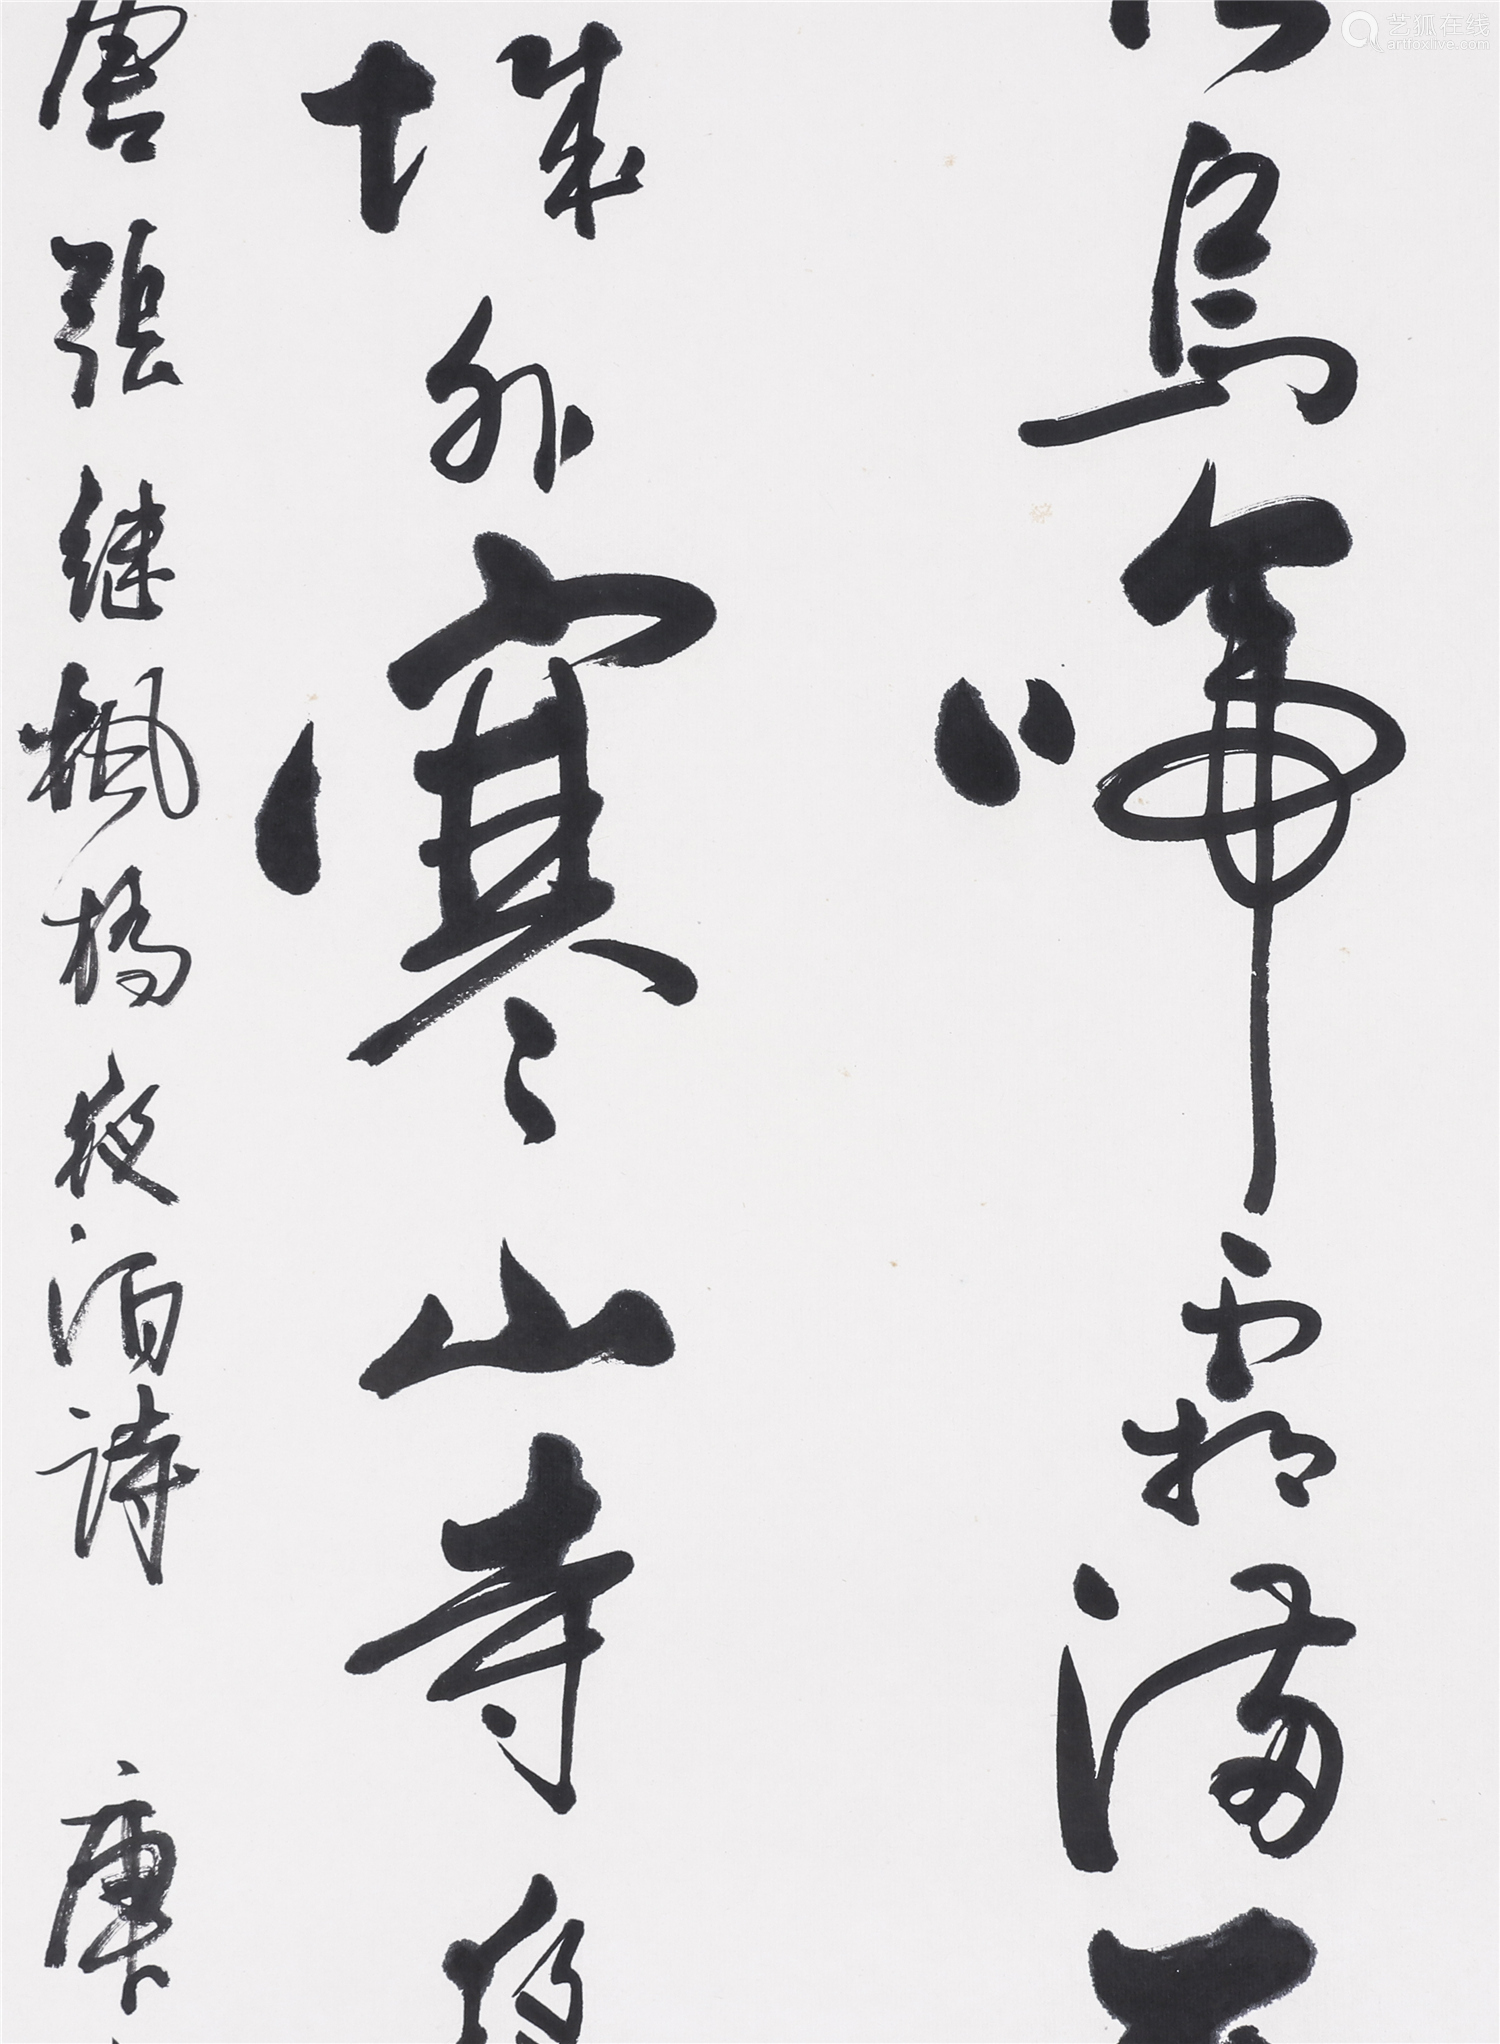 烏啼霜滿天
城外寒山寺夜
唐張継楓橋夜泊詩 庚
艺狐在线
artfoxlive.com